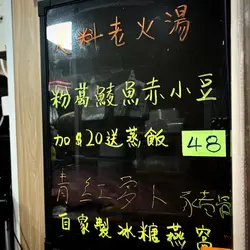 足料老火湯
粉葛鯪魚赤小豆
加$20送蒸飯 48
青紅蘿卜 豬骨
自家製冰糖燕窩